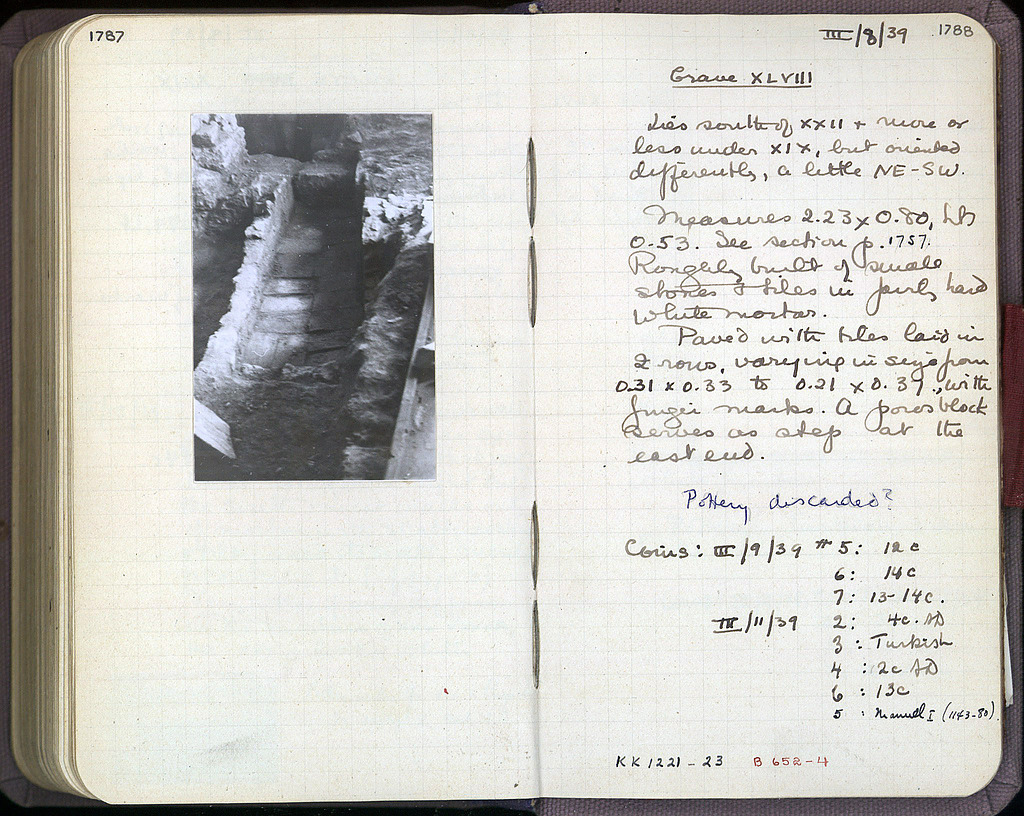 1787
III/8/39 1788
Grave XLVIII
Lies south of XXII + more or
less under XIX, but oriented
differently, a little NE-SW.
Measures 2.23 x 0.80,
0.53. See section p. 1757.
Roughly built of small
stones & tiles in fairly hard
white mortar.
Paved with tiles laid in
2 rows, varying in size from
0.31 x 0.33 to 0.21 x 0.37, with
finger marks. A poros block
serves as step at the
east end.
Pottery discarded?
Coins: III/9/39 # 5: 12c
6: 14c
7: 13-14c.
III/11/39 2: 4c. AD
3: Turkish
4: 2c AD
6: 13c
5: Manuel I (1143-80)
KK 1221-23 B 652-4